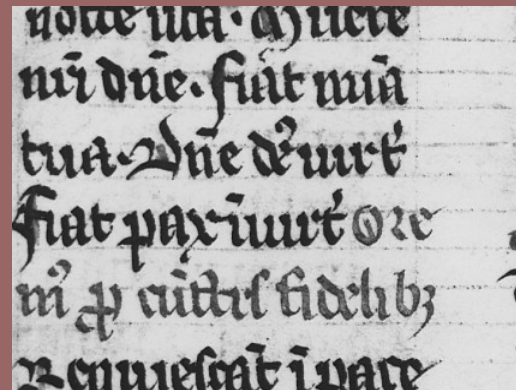 nocte ista · Misere
nr̄i dn̄e. fiat mīa
tua. Dn̄e de᾽ uirt᾽
fiat pax ī uirt᾽ Ore
m᾽ ꝓ cūctis fidelibꝫ
Requiescāt ī pace